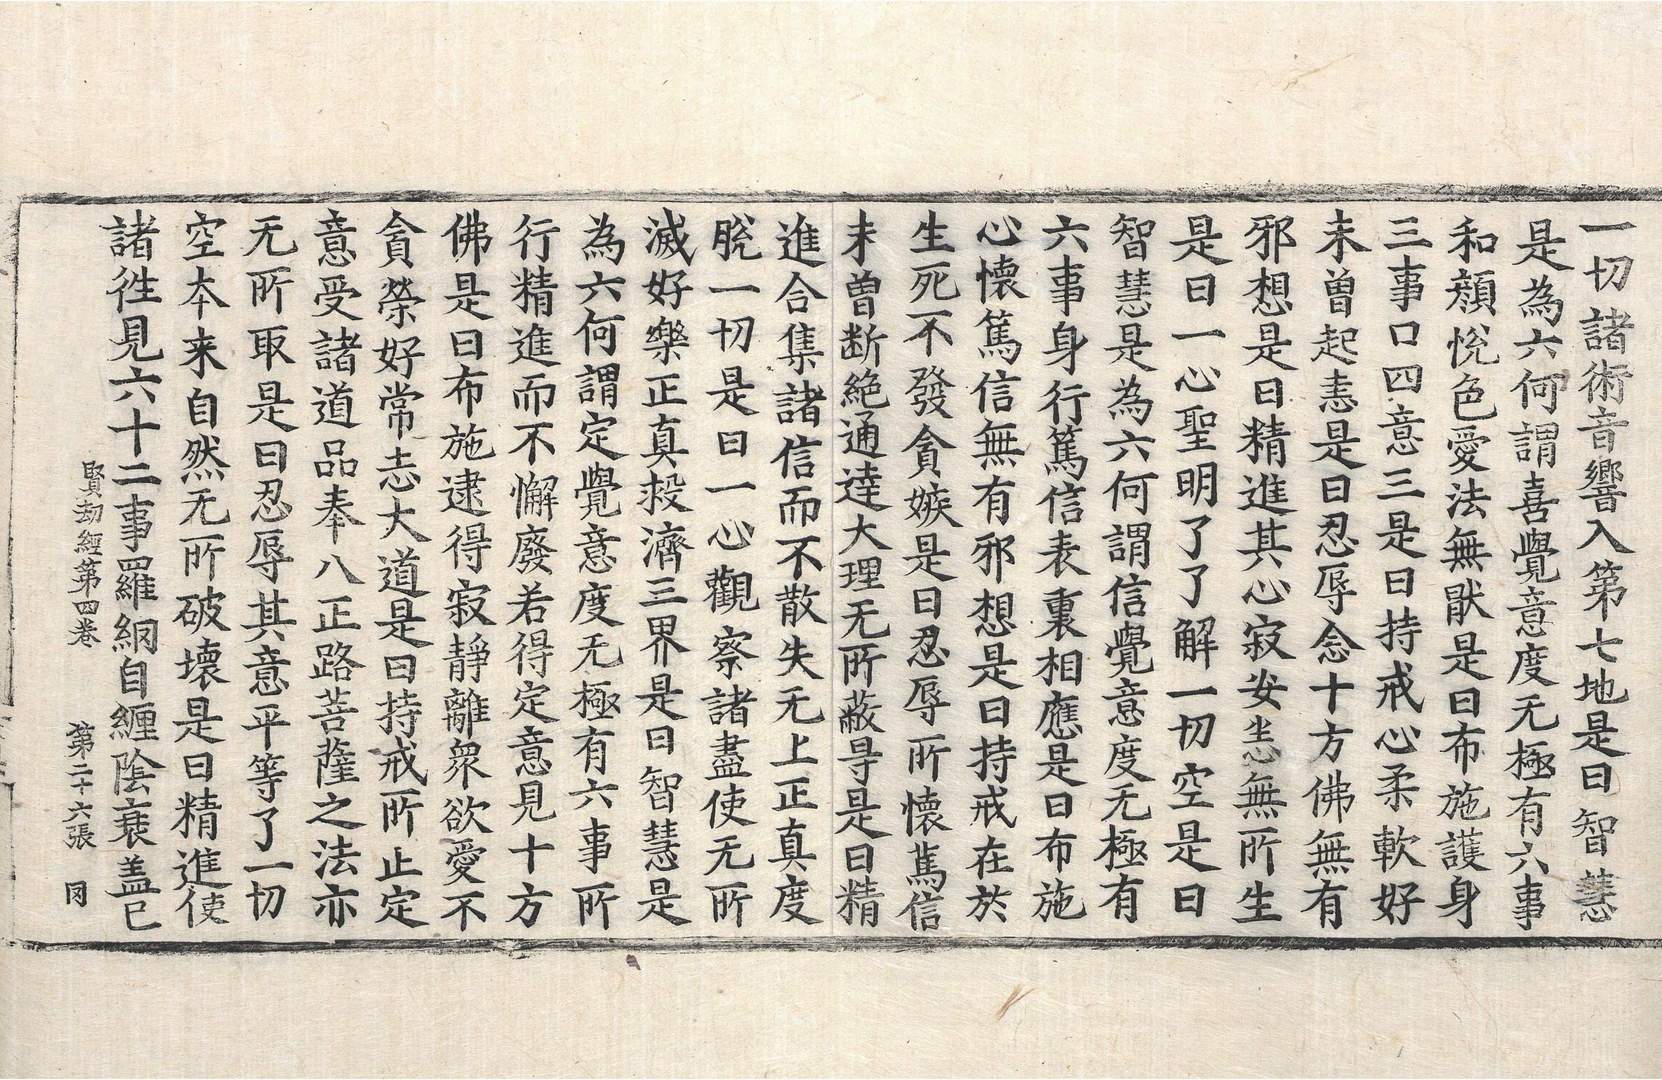 一切諸術音響入第七地是曰智慧
是為六何謂喜覺意度无極有六事
和顔悅色愛法無猒是曰布施護身
三事口四意三是曰持戒心柔軟好
未曾起恚是曰忍辱念十方佛無有
邪想是曰精進其心寂安恙無所生
是曰一心聖明了了解一切空是曰
智慧是為六何謂信覺意度无極有
六事身行篤信表裏相應是曰布施
心懷篤信無有邪想是曰持戒在於
生死不發貪嫉是曰忍辱所懷篤信
未曾断絶通達大理无所蔽㝵是曰精
進合集諸信而不散失无上正真度
脫一切是曰一心觀察諸盡使无所
滅好樂正真救濟三界是曰智慧是
為六何謂定覺意度无極有六事所
行精進而不懈廢若得定意見十方
佛是曰布施逮得寂靜離衆欲愛不
貪榮好常志大道是曰持戒所止定
意受諸道品奉八正路菩薩之法亦
无所取是曰忍辱其意平等了一切
空本来自然无所破壞是曰精進使
諸徃見六十二事羅網自纏陰衰盖已
賢劫經第四卷　第二十六張　冈